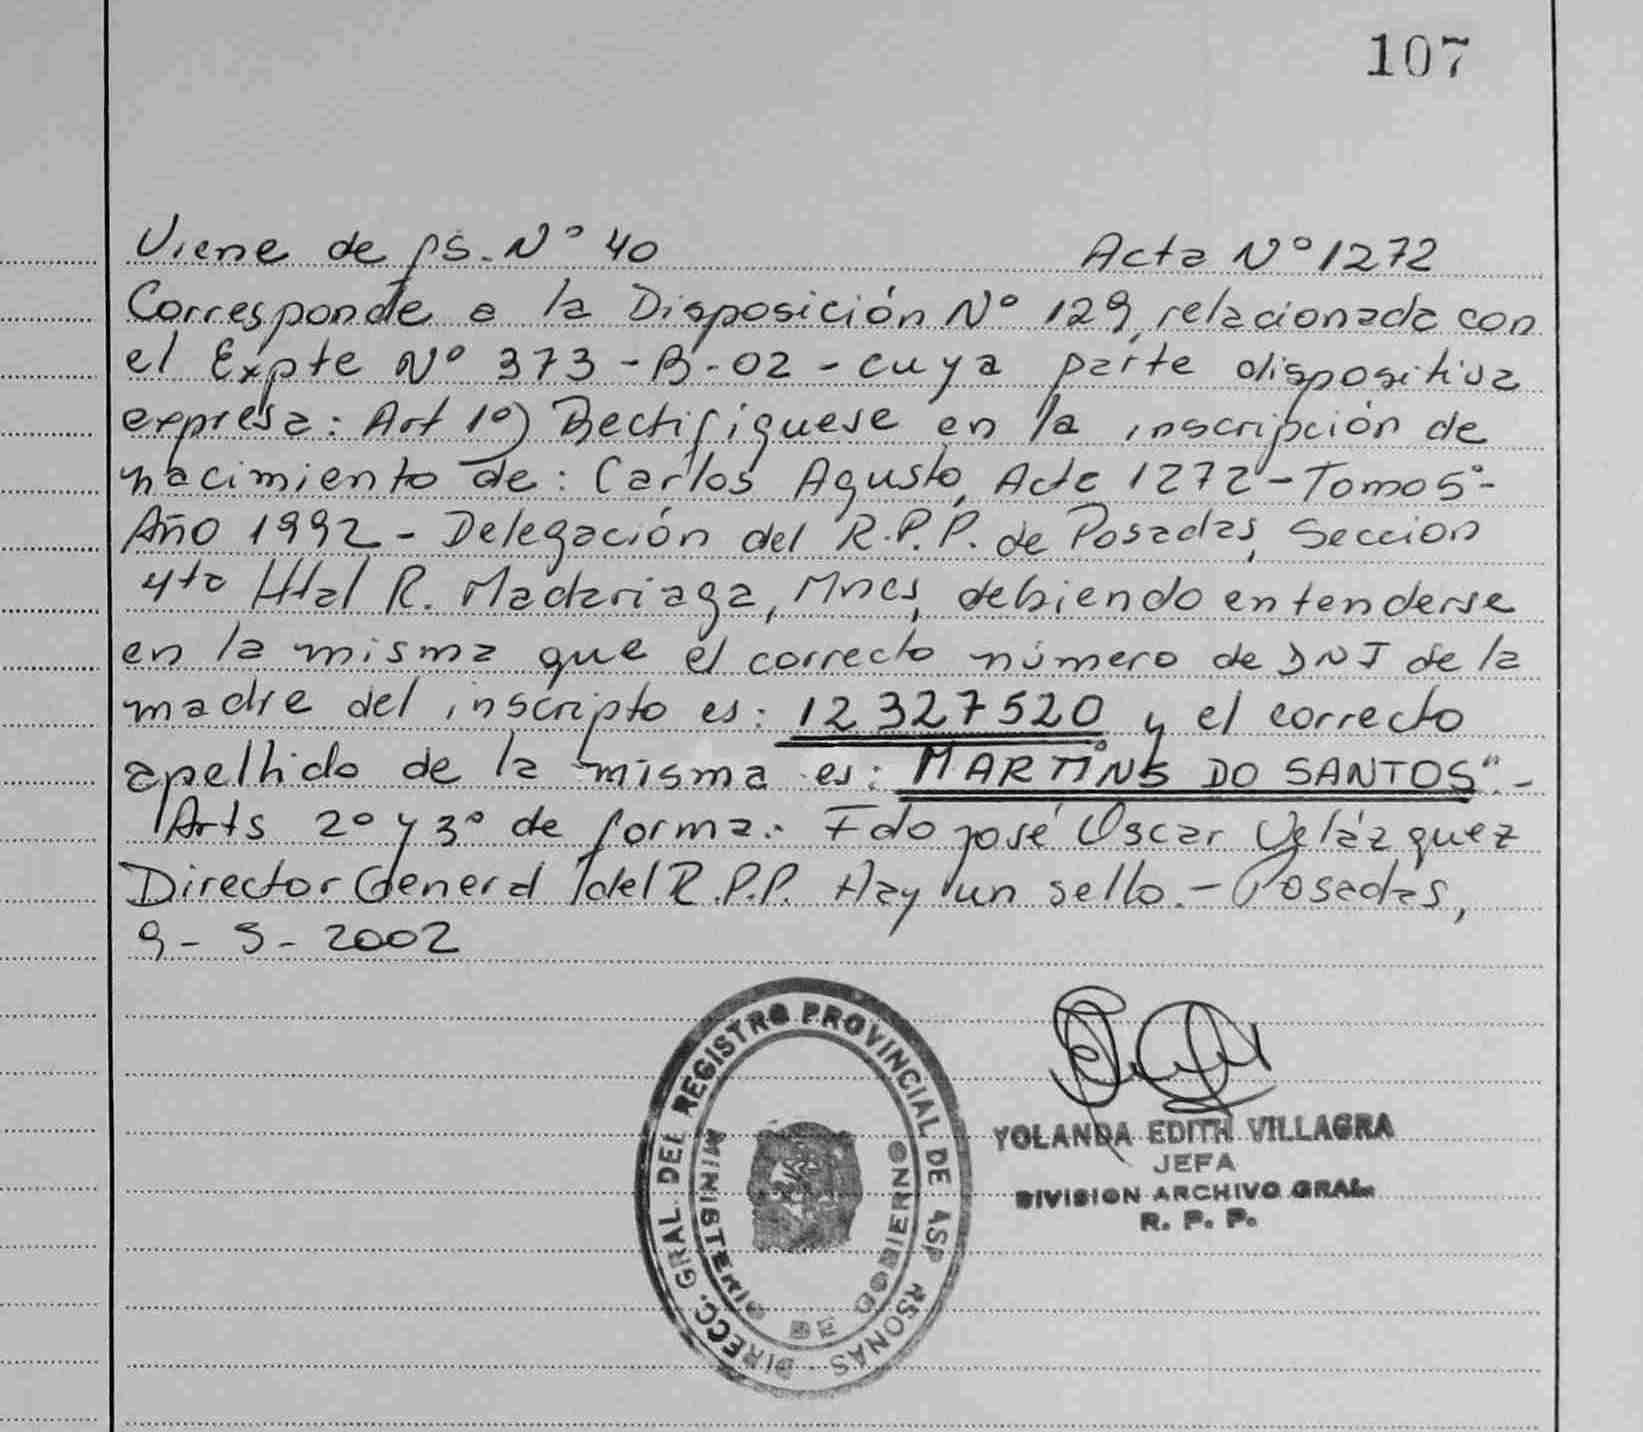 107
Viene de fs. Nº 40 Acta Nº 1272
Corresponde a la Disposición Nº 129, relacionada con
el Expte Nº 373-B-02 - cuya parte dispositiva
expresa: Art 1º) Rectifíquese en la inscripción de
nacimiento de: Carlos Agusto, Acta 1272 - Tomo 5º -
Año 1992 - Delegación del R.P.P. de Posadas, Seccion
4ta Htal R. Madariaga, Mnes, debiendo entenderse
en la misma que el correcto número de DNI de la
madre del inscripto es: 12327520 y el correcto
apellido de la misma es: MARTINS DO SANTOS".-
Arts 2º y 3º de forma.- Fdo José Oscar Velázquez
Director General del R.P.P. Hay un sello.- Posadas,
9-5-2002
DIRECC. GRAL. DEL REGISTRO PROVINCIAL DE ASP RSONAS
MINISTERIO DE GOBIERNO
YOLANDA EDITH VILLAGRA
JEFA
DIVISION ARCHIVO GRAL.
R. P. P.